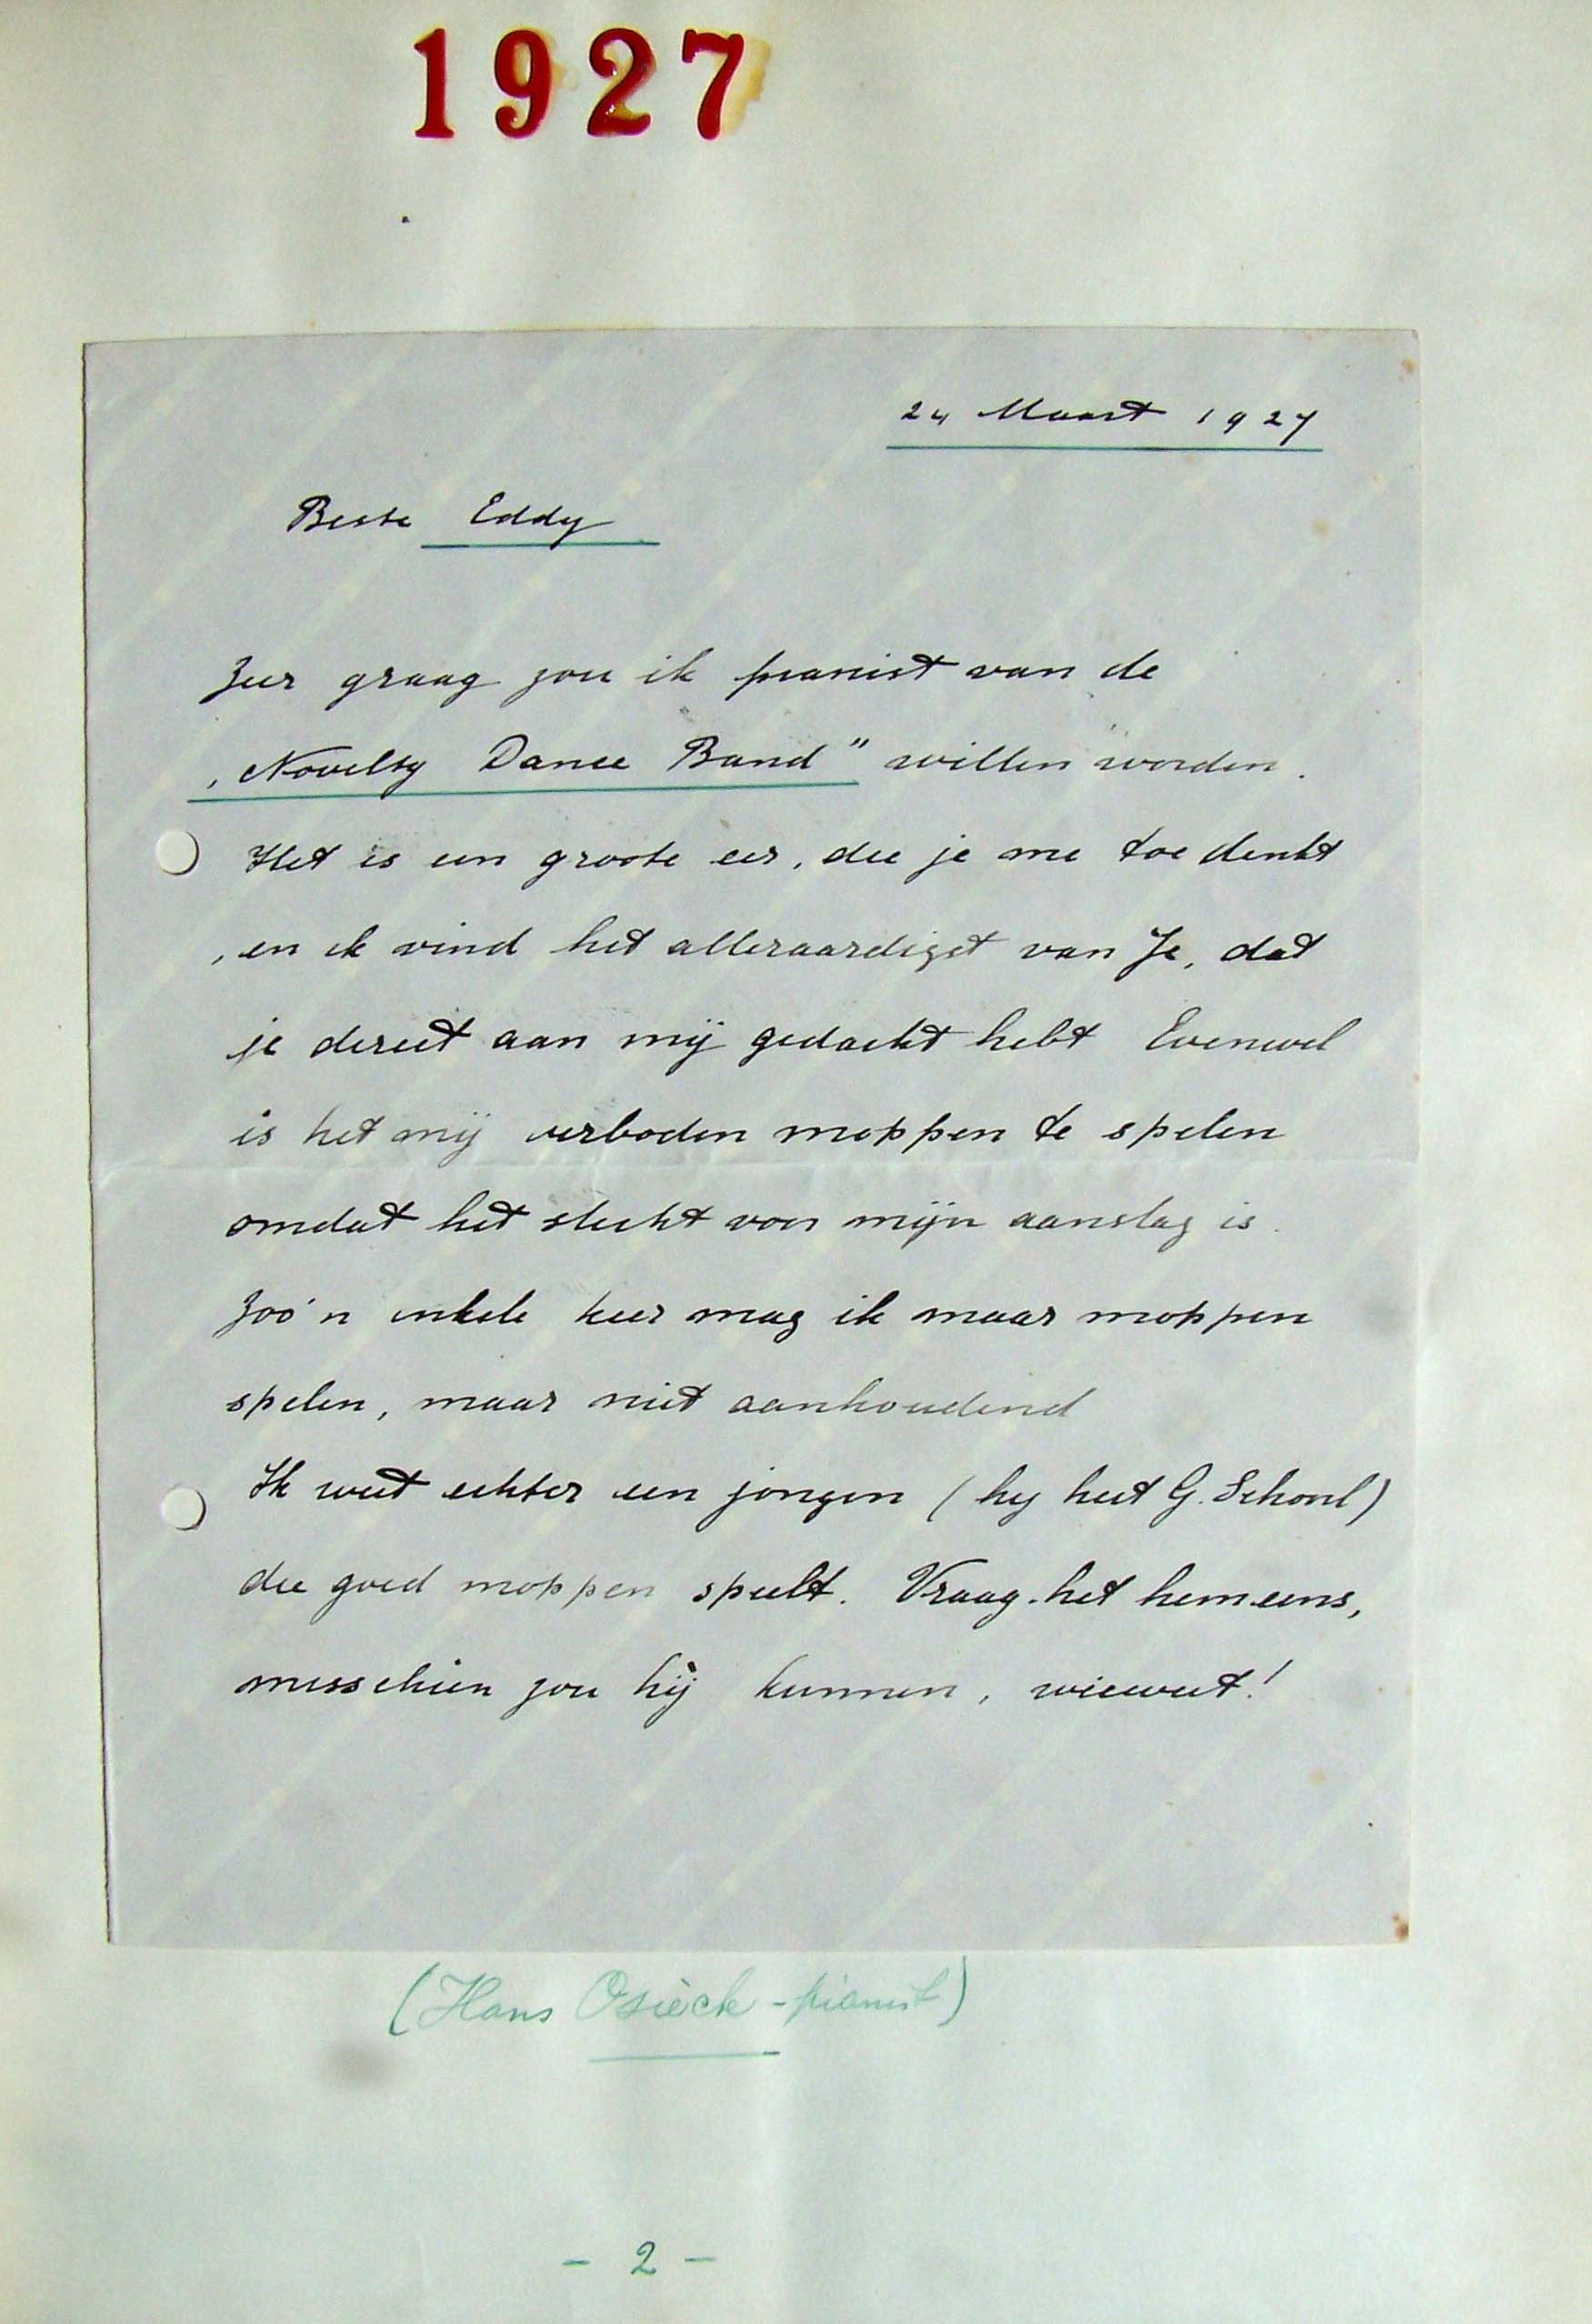 1927
24 Maart 1927
Beste Eddy
Zeer graag zou ik pianist van de
„Novelty Dance Band" willen worden.
Het is een groote eer, die je me toe denkt
, en ik vind het alleraardigst van Je, dat
je direct aan mij gedacht hebt Evenwel
is het mij verboden moppen te spelen
omdat het slecht voor mijn aanslag is.
Zoo'n enkele keer mag ik maar moppen
spelen, maar niet aanhoudend
Ik weet echter een jongen (hy heet G. Schoul)
die goed moppen speelt. Vraag het hem eens,
misschien zou hij kunnen, wieweet!
(Hans Osieck - pianist)
- 2 -